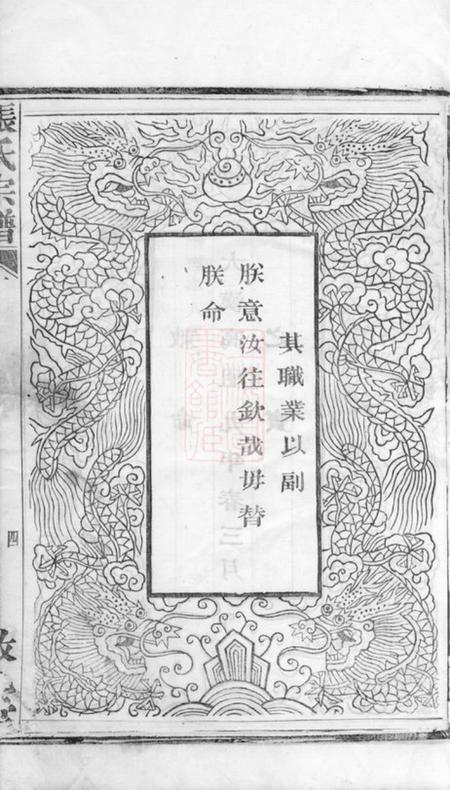 其職業以副
朕意汝往欽哉毋替
朕命
張氏宗譜
四